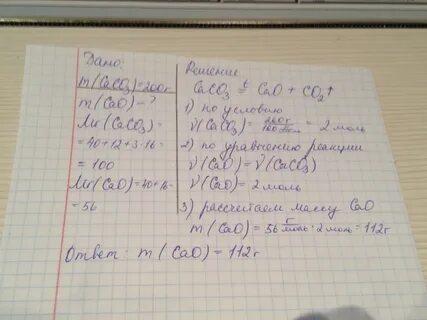 Дано:
m(CaCO₃)=200г
m(CaO)-?
Mr(CaCO₃)=
=40+12+3·16=
=100
Mr(CaO)=40+16=
=56
Решение
CaCO₃ =t CaO + CO₂↑
1) по условию
ν(CaCO₃) = 200г / 100г/моль = 2 моль
2) по уравнению реакции
ν(CaO) = ν(CaCO₃)
ν(CaO) = 2 моль
3) рассчитаем массу CaO
m(CaO) = 56 г/моль · 2 моль = 112г
Ответ: m(CaO) = 112г